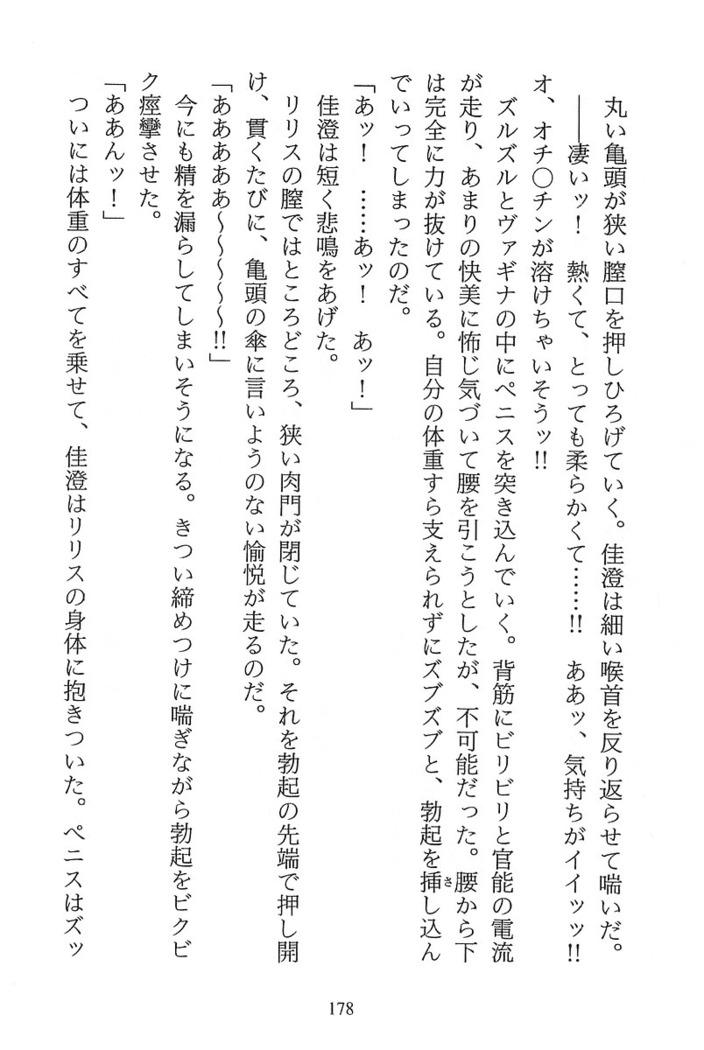 丸い亀頭が狭い膣口を押しひろげていく。佳澄は細い喉首を反り返らせて喘いだ。
――凄いッ！　熱くて、とっても柔らかくて……!!　ああッ、気持ちがイイッッ!!
オ、オチ〇チンが溶けちゃいそうッ!!
ズルズルとヴァギナの中にペニスを突き込んでいく。背筋にビリビリと官能の電流
が走り、あまりの快美に怖じ気づいて腰を引こうとしたが、不可能だった。腰から下
は完全に力が抜けている。自分の体重すら支えられずにズブズブと、勃起を挿し込ん
でいってしまったのだ。
「あッ！　……あッ！　あッ！」
佳澄は短く悲鳴をあげた。
リリスの膣ではところどころ、狭い肉門が閉じていた。それを勃起の先端で押し開
け、貫くたびに、亀頭の傘に言いようのない愉悦が走るのだ。
「あああああ～～～～～!!」
今にも精を漏らしてしまいそうになる。きつい締めつけに喘ぎながら勃起をビクビ
ク痙攣させた。
「ああんッ！」
ついには体重のすべてを乗せて、佳澄はリリスの身体に抱きついた。ペニスはズッ
178